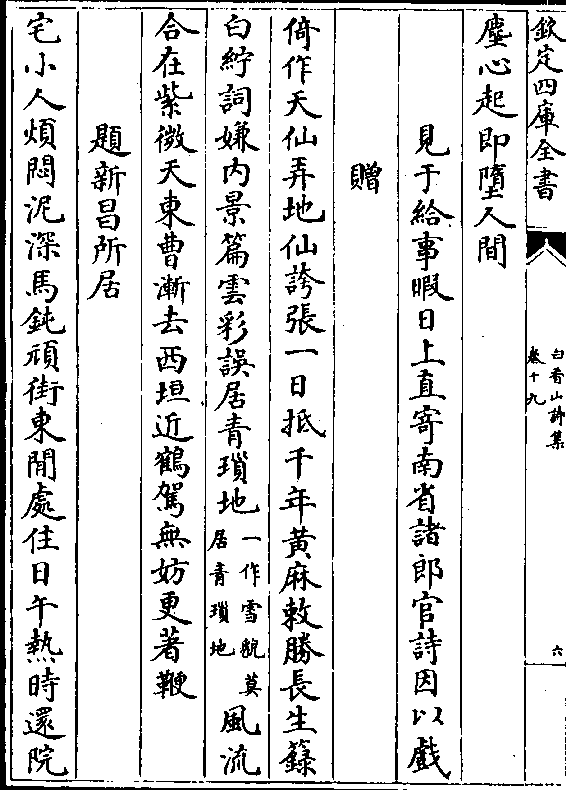 欽定四庫全書
白香山詩集
卷十九
六
塵心起即墮人間
見于給事暇日上直寄南省諸郎官詩因以戲
贈
倚作天仙弄地仙誇張一日抵千年黃麻敕勝長生籙
白紵詞嫌內景篇雲彩誤居青瑣地一作雪貌莫居青瑣地風流
合在紫微天東曹漸去西垣近鶴駕無妨更著鞭
題新昌所居
宅小人煩悶泥深馬鈍頑街東閒處住日午熱時還院